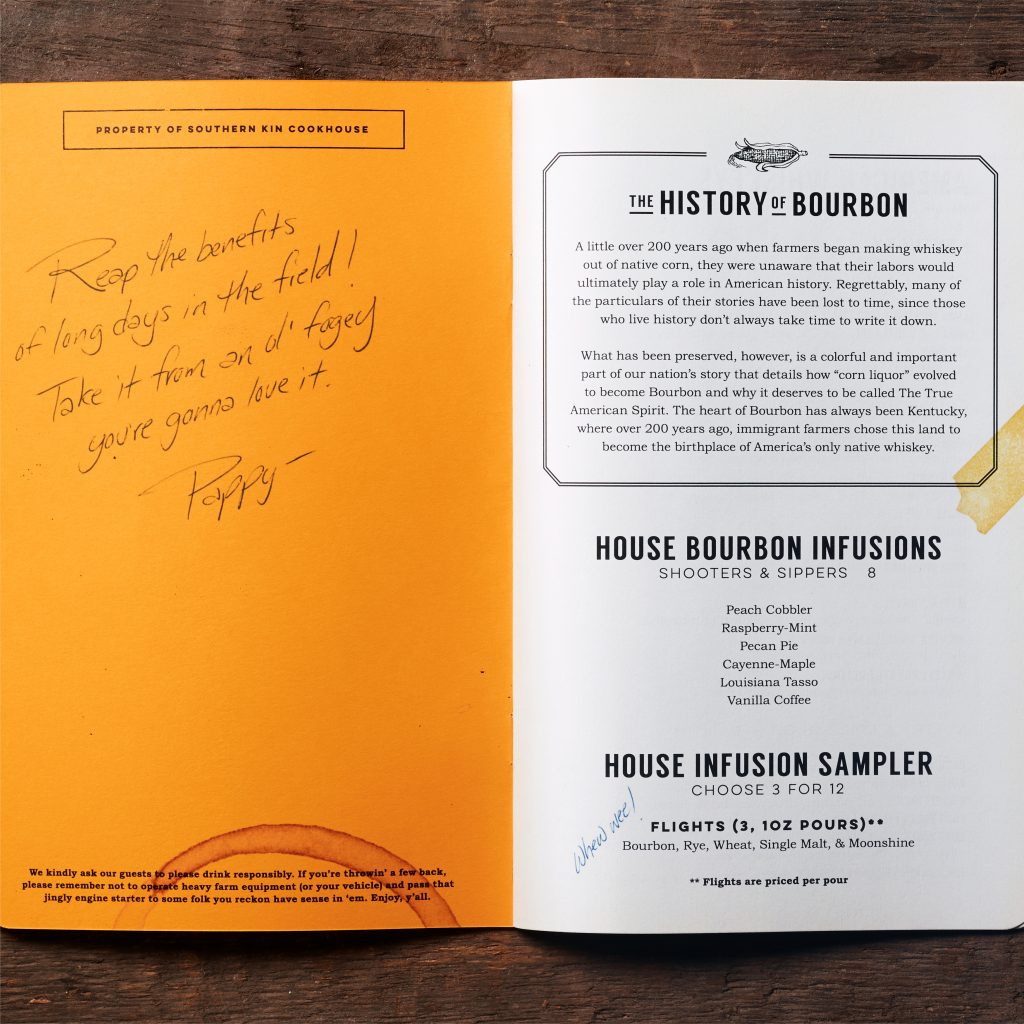 PROPERTY OF SOUTHERN KIN COOKHOUSE
Reap the benefits
of long days in the field!
Take it from an ol' fogey
you're gonna love it.
Pappy—
We kindly ask our guests to please drink responsibly. If you're throwin' a few back,
please remember not to operate heavy farm equipment (or your vehicle) and pass that
jingly engine starter to some folk you reckon have sense in 'em. Enjoy, y'all.
THE HISTORY OF BOURBON
A little over 200 years ago when farmers began making whiskey
out of native corn, they were unaware that their labors would
ultimately play a role in American history. Regrettably, many of
the particulars of their stories have been lost to time, since those
who live history don't always take time to write it down.
What has been preserved, however, is a colorful and important
part of our nation's story that details how "corn liquor" evolved
to become Bourbon and why it deserves to be called The True
American Spirit. The heart of Bourbon has always been Kentucky,
where over 200 years ago, immigrant farmers chose this land to
become the birthplace of America's only native whiskey.
HOUSE BOURBON INFUSIONS
SHOOTERS & SIPPERS 8
Peach Cobbler
Raspberry-Mint
Pecan Pie
Cayenne-Maple
Louisiana Tasso
Vanilla Coffee
HOUSE INFUSION SAMPLER
CHOOSE 3 FOR 12
Whew wee!
FLIGHTS (3, 1OZ POURS)**
Bourbon, Rye, Wheat, Single Malt, & Moonshine
** Flights are priced per pour